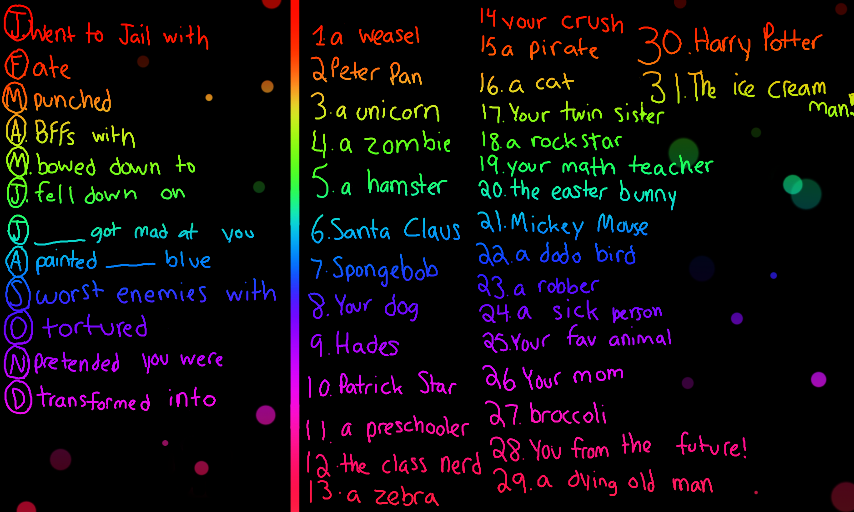 J. Went to Jail with
F ate
M punched
A. BFFs with
M. bowed down to
J. fell down on
J ____ got mad at you
A painted ____ blue
S worst enemies with
O tortured
N pretended you were
D transformed into
1 a weasel
2 Peter Pan
3. a unicorn
4. a zombie
5. a hamster
6. Santa Claus
7. Spongebob
8. Your dog
9. Hades
10. Patrick Star
11. a preschooler
12. the class nerd
13. a zebra
14 your crush
15 a pirate
16. a cat
17. Your twin sister
18. a rockstar
19. your math teacher
20. the easter bunny
21. Mickey Mouse
22. a dodo bird
23. a robber
24. a sick person
25. Your fav animal
26 Your mom
27. broccoli
28. You from the future!
29. a dying old man
30. Harry Potter
31. The ice cream
man!